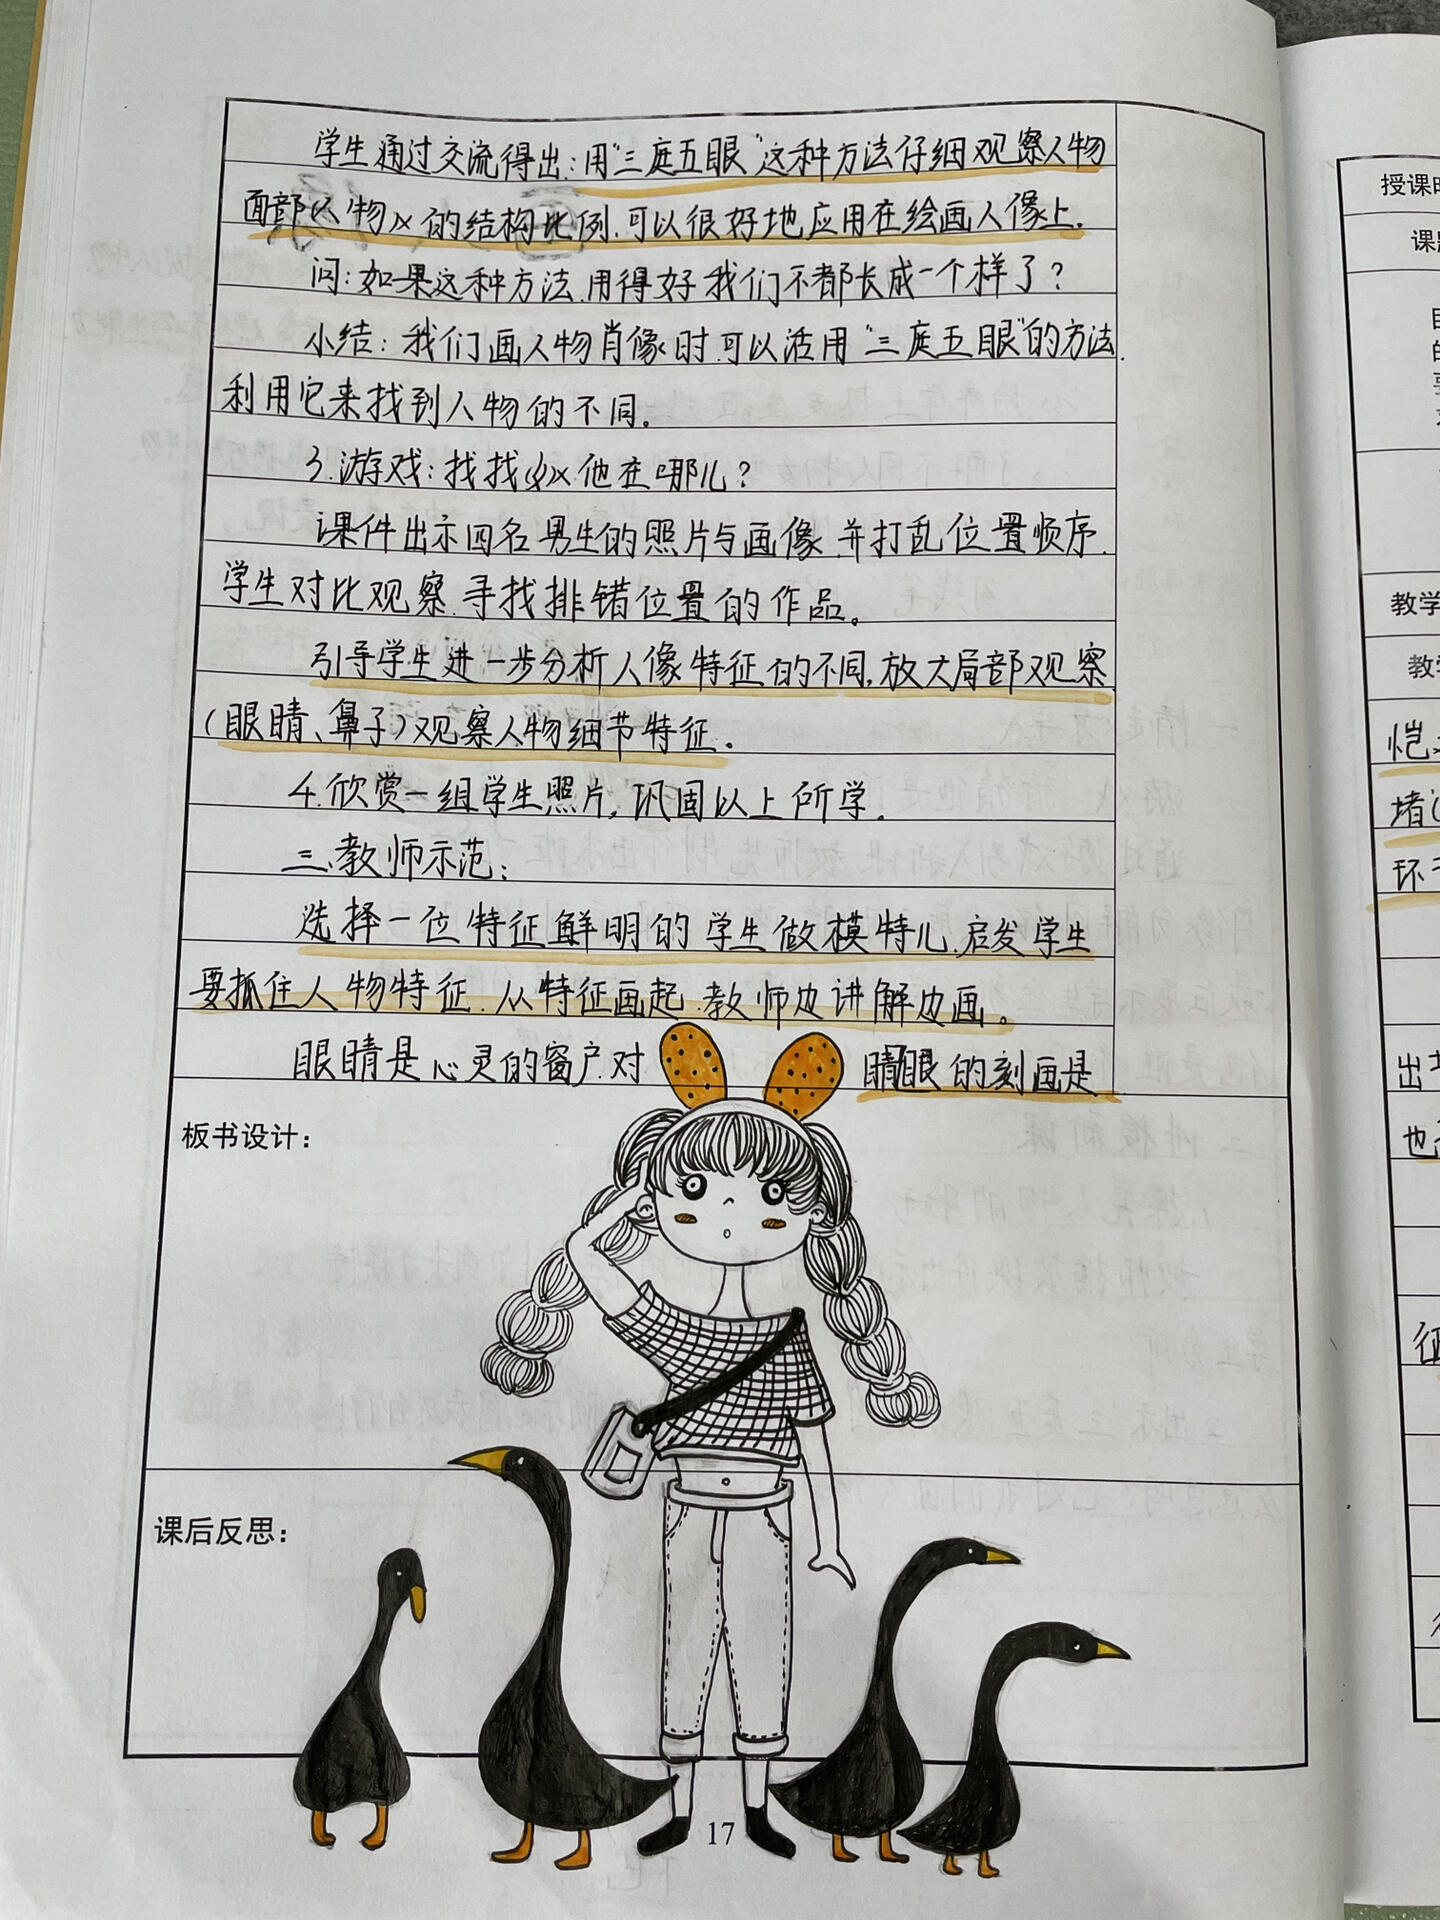 学生通过交流得出:用“三庭五眼”这种方法仔细观察人物
面部人物的结构比例.可以很好地应用在绘画人像上.
问:如果这种方法.用得好我们不都长成一个样了?
小结:我们画人物肖像时.可以活用“三庭五眼”的方法.
利用它来找到人物的不同。
3.游戏:找找他在哪儿?
课件出示四名男生的照片与画像.并打乱位置顺序.
学生对比观察.寻找排错位置的作品。
引导学生进一步分析人像特征的不同,放大局部观察
(眼睛、鼻子)观察人物细节特征。
4.欣赏一组学生照片,巩固以上所学.
三.教师示范:
选择一位特征鲜明的学生做模特儿.启发学生
要抓住人物特征.从特征画起.教师边讲解边画。
眼睛是心灵的窗户.对睛眼的刻画是
板书设计:
课后反思:
17
课
教学
教
恺
堵
环
出
也
征